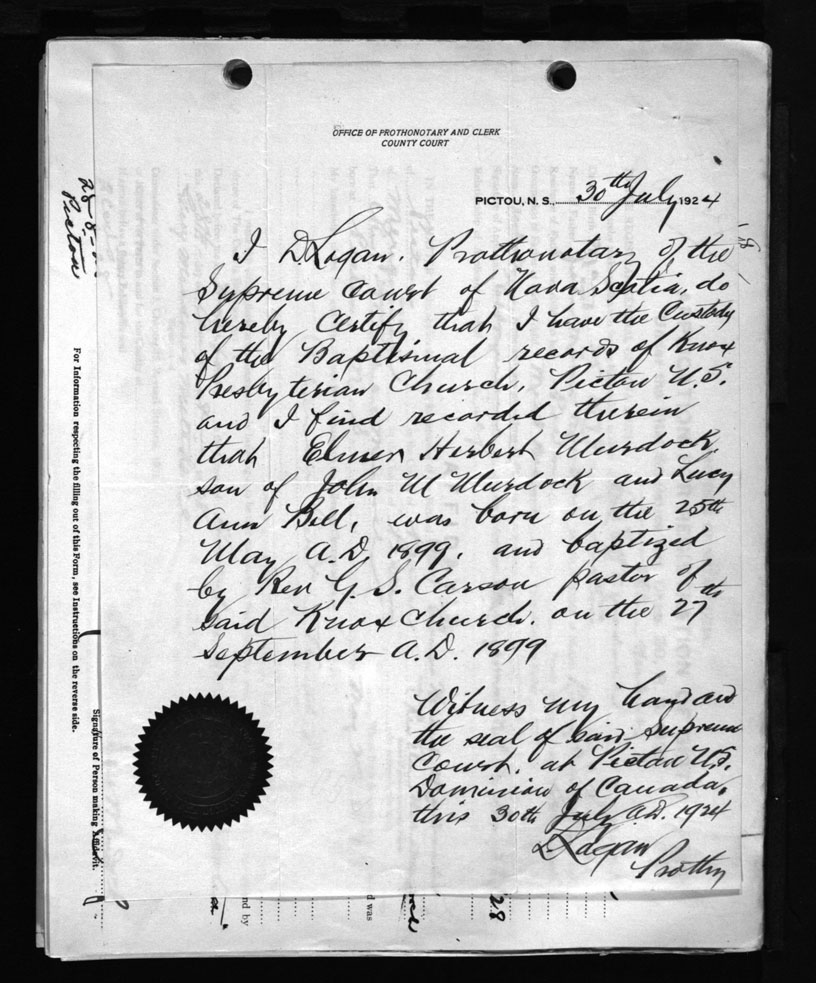 OFFICE OF PROTHONOTARY AND CLERK
COUNTY COURT
PICTOU, N. S., 30th July 1924
I D. Logan, Prothonotary of the
Supreme Court of Nova Scotia, do
hereby Certify that I have the Custody
of the Baptismal records of Knox
Presbyterian Church, Pictou N.S.
and I find recorded therein
that Elmer Herbert Murdock
son of John M Murdock and Lucy
Ann Bell, was born on the 25th
May A.D. 1899. and baptized
by Rev G. S. Carson pastor of
said Knox Church. on the 27th
September A.D. 1899
Witness my hand and
the seal of said Supreme
Court, at Pictou N.S.
Dominion of Canada,
this 30th July A.D. 1924
D. Logan
Prothy
Pictou
For Information respecting the filling out of this Form, see Instructions on the reverse side.
Signature of Person making Affidavit.
nd by
d was
28